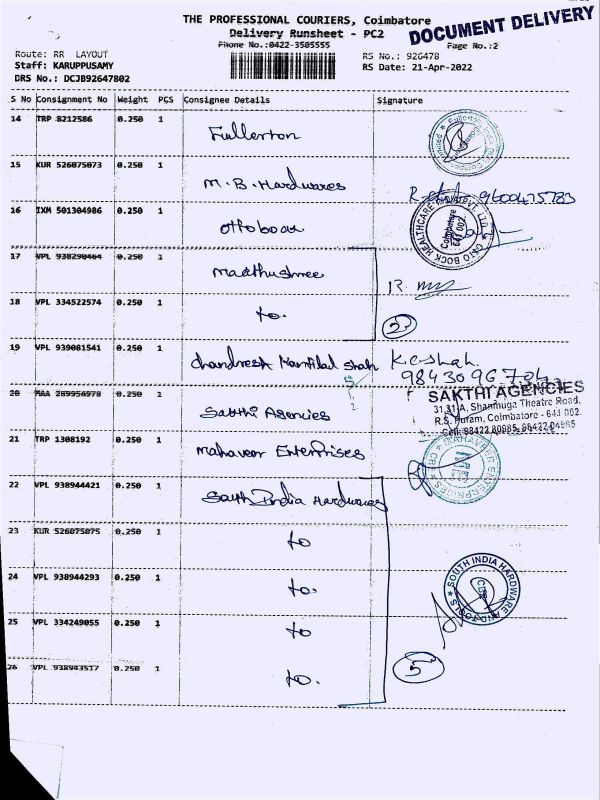 THE PROFESSIONAL COURIERS, Coimbatore
DOCUMENT DELIVERY
Delivery Runsheet - PC2
Phone No.:0422-3505555
Page No.:2
Route: RR LAYOUT
RS No.: 926478
Staff: KARUPPUSAMY
RS Date: 21-Apr-2022
DRS No.: DCJB92647802
S No Consignment No Weight PCS Consignee Details Signature
14 TRP 8212586 0.250 1 Fullerton
15 KUR 526075073 0.250 1 M.B. Hardwares 9600475783
16 IXM 501304986 0.250 1 Ottobock
OTTO BOCK HEALTHCARE PVT. LTD. Coimbatore 641 002.
17 VPL 938290464 0.250 1 Madthushree
18 VPL 334522574 0.250 1 to. 2
19 VPL 939081541 0.250 1 Chandresh Kantilal Shah K.C. Shah.
98430 96704
20 MAA 289956578 0.250 1 Sakthi Agencies
SAKTHI AGENCIES
31,31-A, Shanmuga Theatre Road,
R.S. Puram, Coimbatore - 641 002.
Cell: 98422 80985, 98422 04985
21 TRP 1308192 0.250 1 Mahaveer Enterprises
MAHAVEER ENTERPRISES CBE
22 VPL 938944421 0.250 1 South India Hardwares
23 KUR 526075075 0.250 1 to
24 VPL 938944293 0.250 1 to.
SOUTH INDIA HARDWARE AND TOOLS
25 VPL 334249055 0.250 1 to
26 VPL 938943517 0.250 1 to. 5